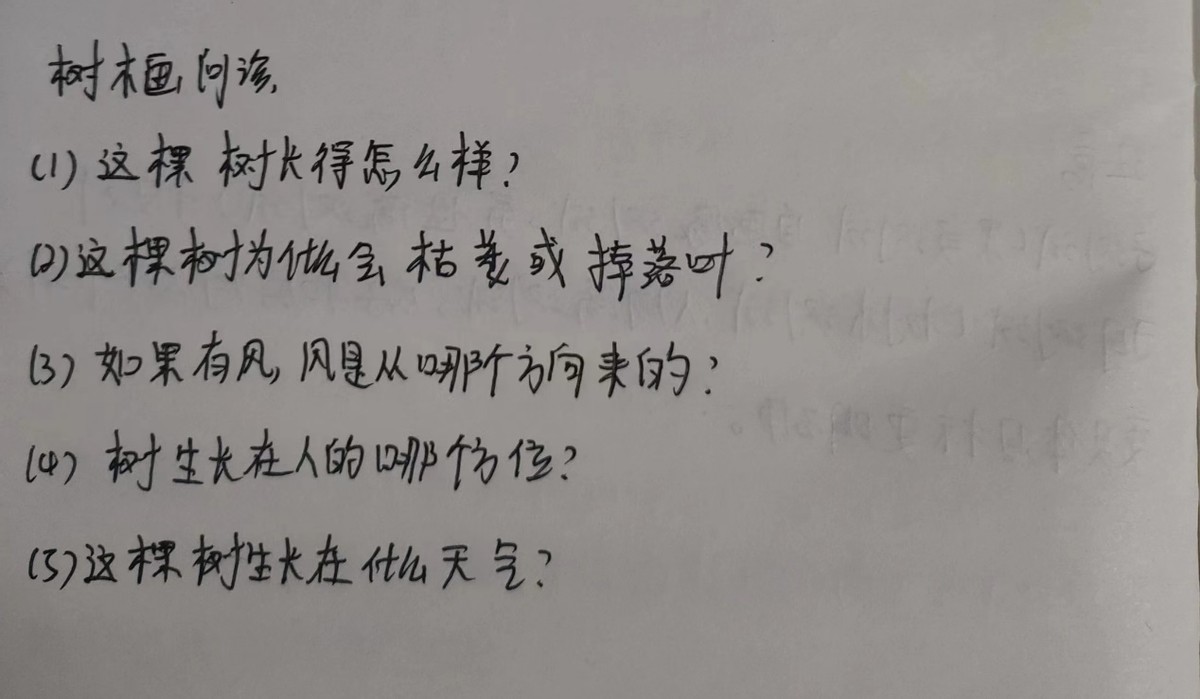 树木画问诊
(1) 这棵树长得怎么样?
(2) 这棵树为什么会枯萎或掉落叶?
(3) 如果有风, 风是从哪个方向来的?
(4) 树生长在人的哪个方位?
(5) 这棵树生长在什么天气?